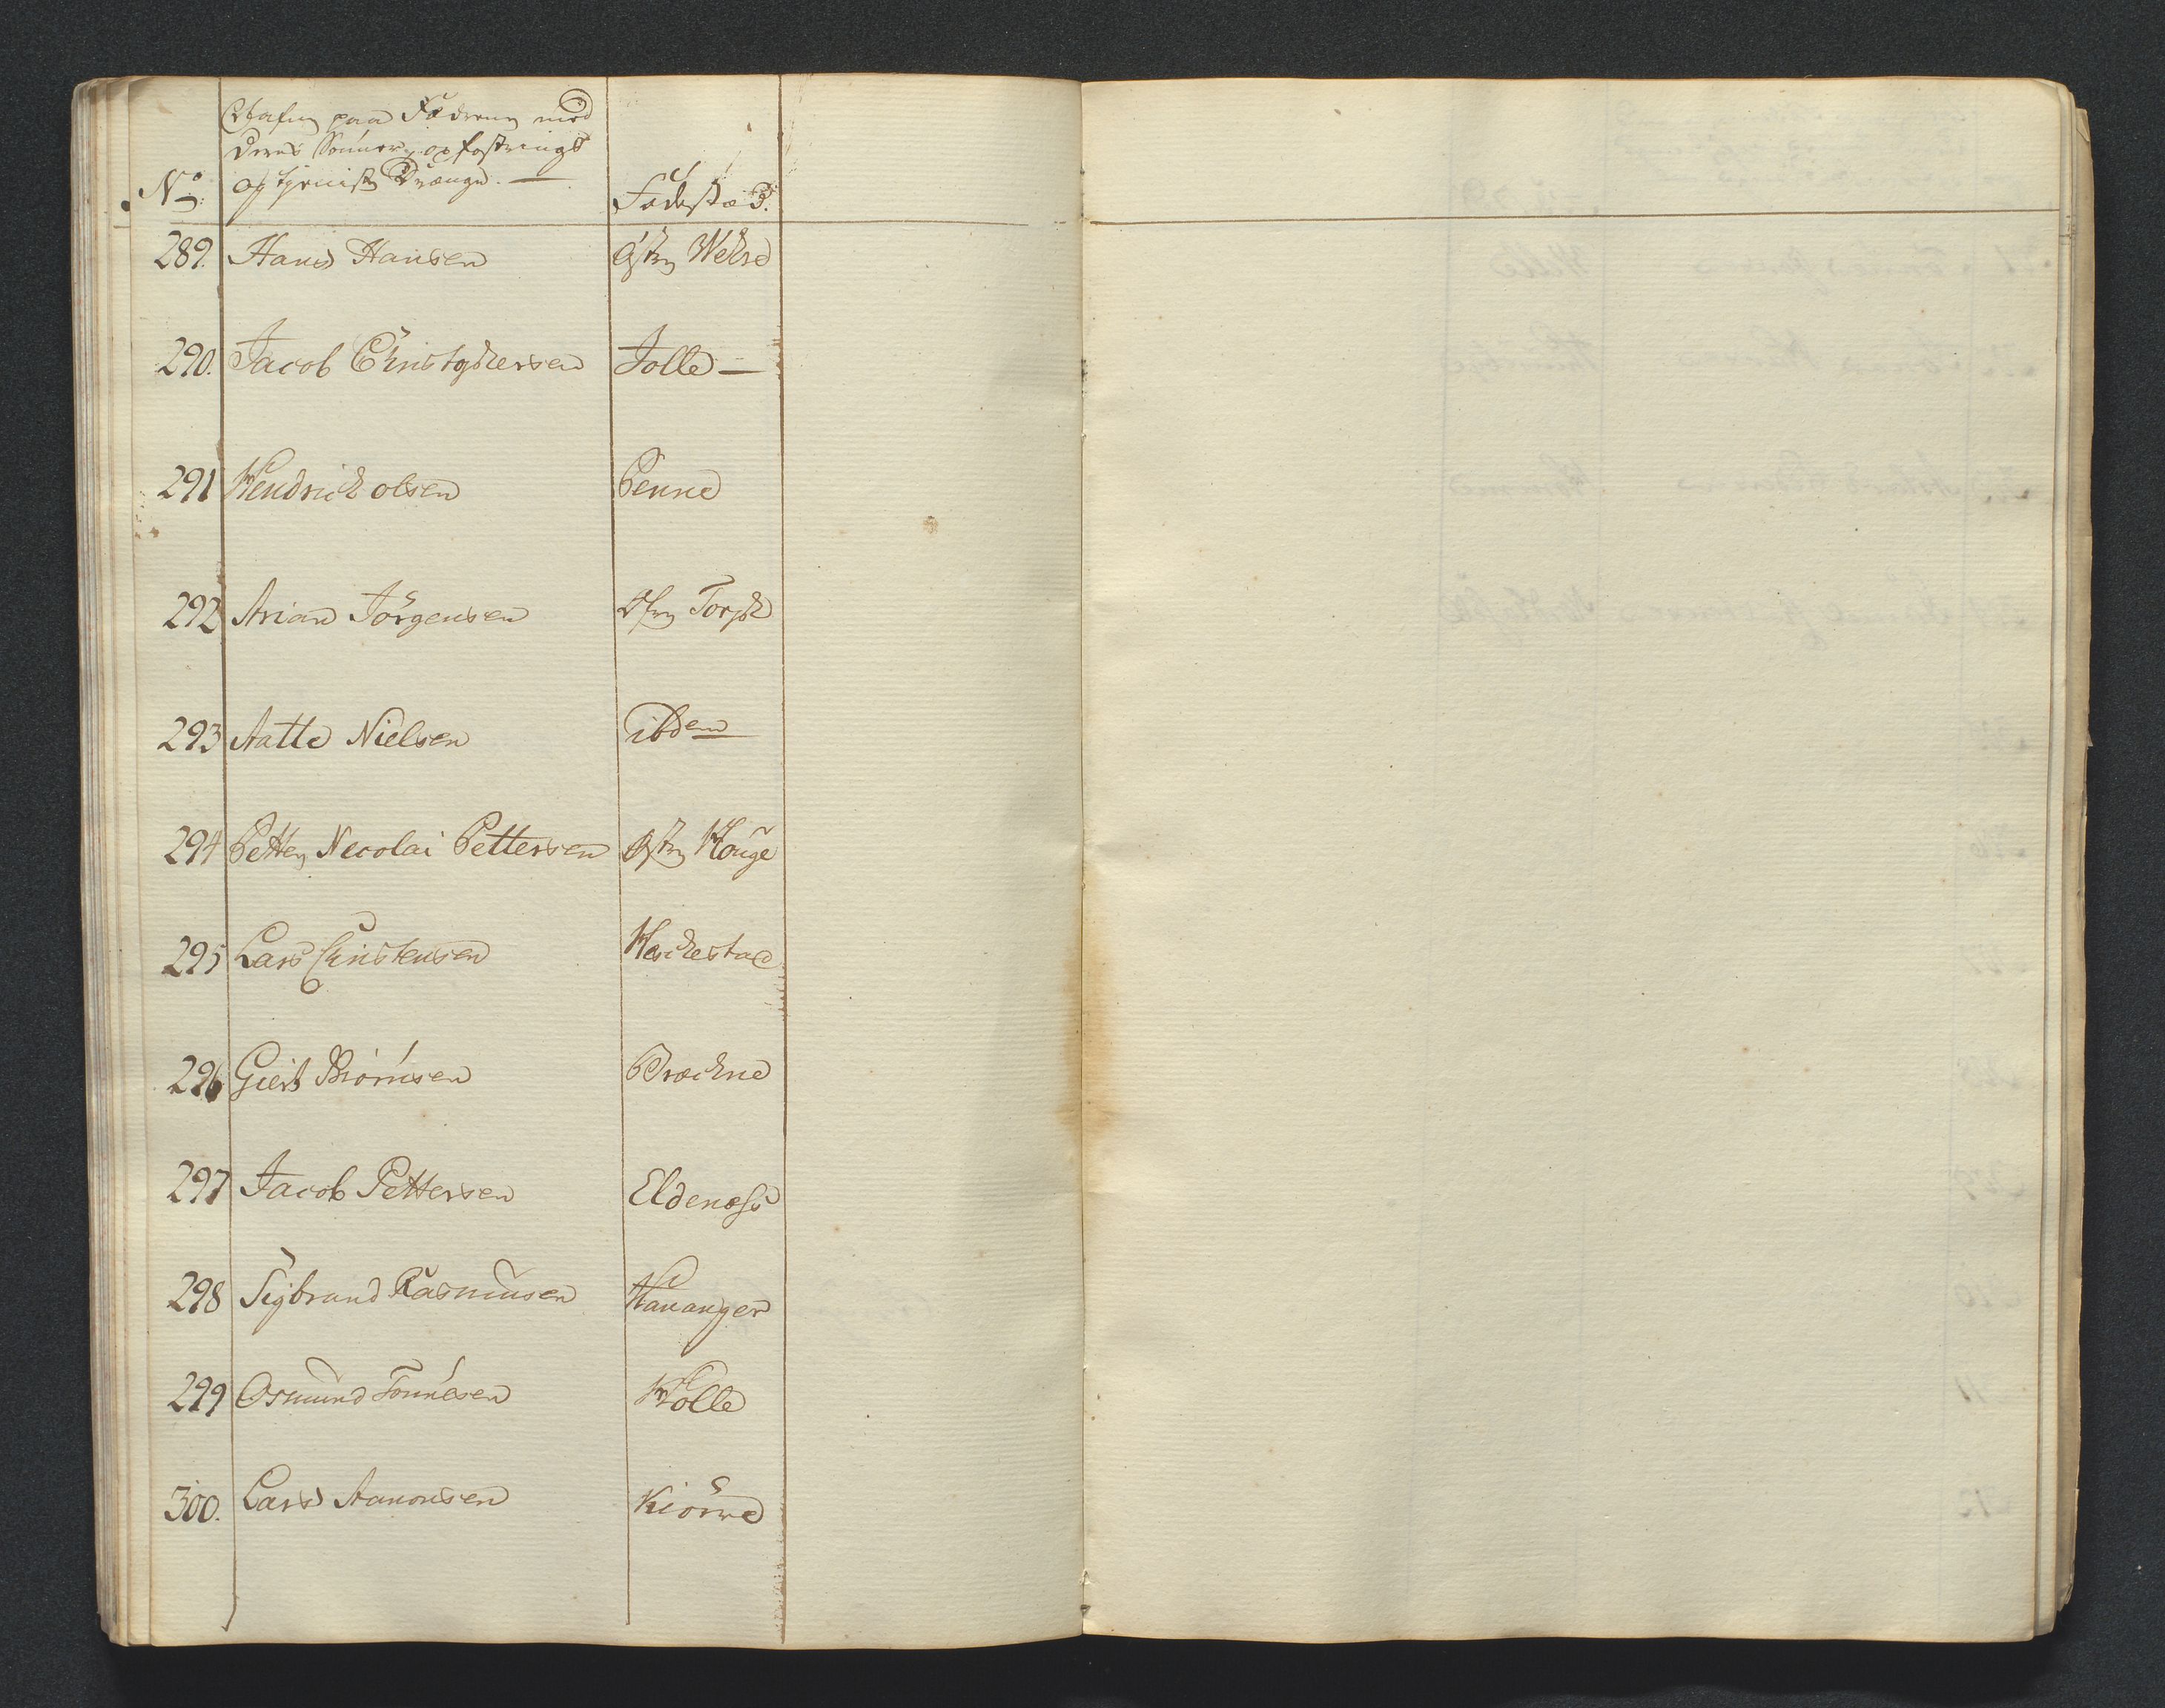 Nafn paa Fædrene med
deres Sönner, opfostrings
No. og tieniste Drænge. — Födestæd.
289. Hans Hansen Østre Wekre
290. Jacob Christophersen Jolle —
291 Hendrich olsen Penne
292 Arian Jörgensen Øfre Torp
293 Aatte Nielsen ibdem
294 Petter Necolai Pettersen Østre Houge
295 Lars Christensen
296 Giert Biörnsen Bræckne
297 Jacob Pettersen Eldenæss
298 Sigbrand Rasmusen Hananger
299 Osmund Tonnesen Kolle
300. Lars Aanonsen Kiörre